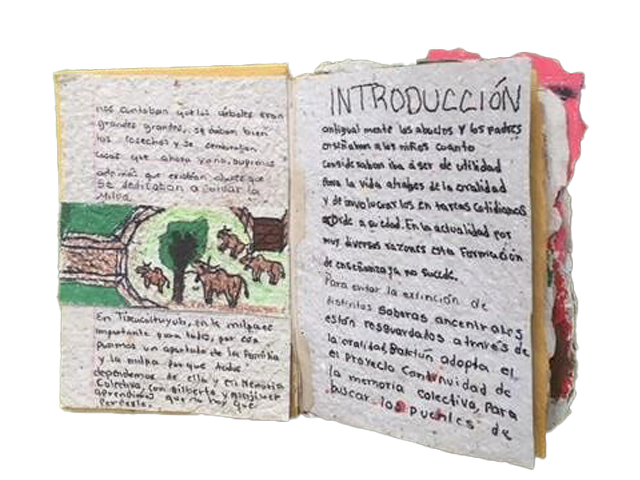 nos contaban que los árboles eran
grandes grandes, se daban bien
los cosechas y se sembraban
cosas que ahora ya no, supimos
además que existían abuelos que
se dedicaban a cuidar la
milpa.
En Tixcacaltuyub, en la milpa es
importante para todo, por eso
pusimos un apartado de la Familia
y la milpa porque todos
dependemos de ella y en Memoria
Colectiva, con Gilberto y
aprendimos que no hay que
perderla.
INTRODUCCIÓN
antigual mente los abuelos y los padres
enseñaban a los niños cuanto
considesaban iba áser de utilidad
Para la vida atrabes de la oralidad
y de involucrarlos en tareas cotidianas
acorde a su edad. En la actualidad por
muy diversas razones esta Formación
de enseñanza ya no sucede.
Para evitar la extinción de
distintos Saberas ancentrales
están resguardados através de
la oralidad, Baktún adopta el
el Proyecto Continuidad de
la memoria colectiva, Para
buscar los puentes de